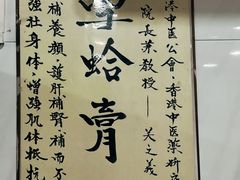 港中医公會·香港中医藥研
院長葉教授——关之義
蛤膏
補養顏，護肝補腎，補而不
强壯身体，增强肌体抵抗